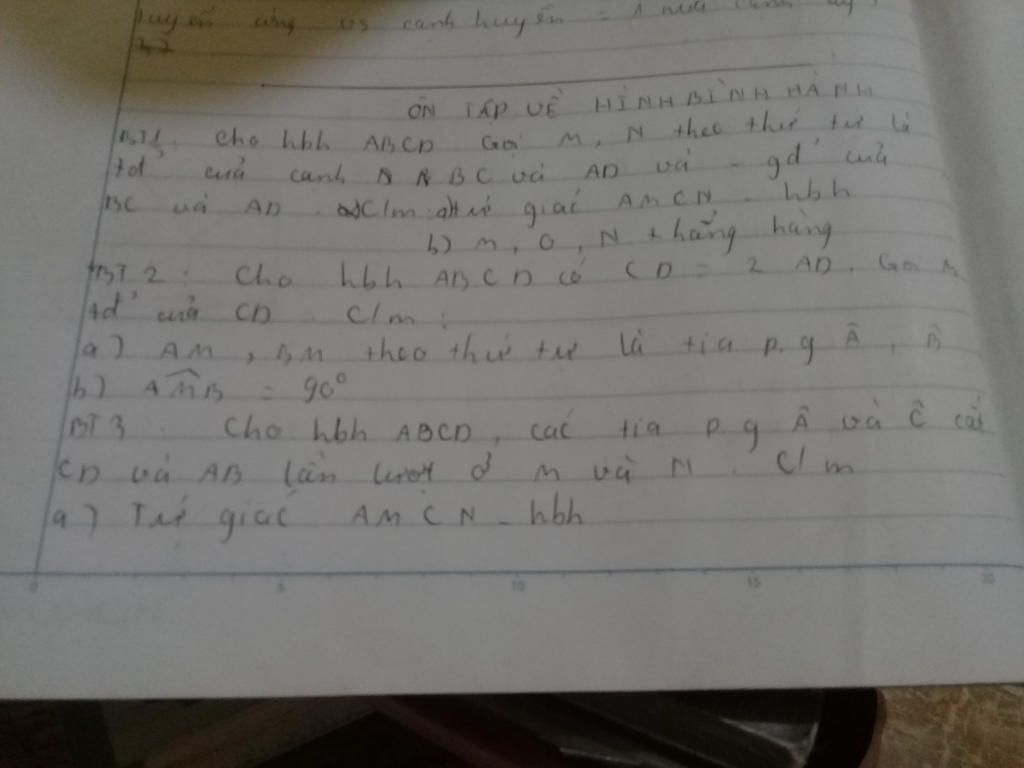 tuyến ứng vs cạnh huyền = 1 nửa cạnh ấy
ÔN TẬP VỀ HÌNH BÌNH HÀNH
BT1: Cho hbh ABCD Gọi M, N theo thứ tự là
tđ' của cạnh BC và AD và gđ' của
BC và AD. C/m: a) tứ giác AMCN - hbh
b) M, O, N thẳng hàng
BT 2: Cho hbh ABCD có CD = 2 AD. Gọi M
tđ' của CD. C/m:
a) AM, BM theo thứ tự là tia p.g Â, B̂
b) AM̂B = 90°
BT 3. Cho hbh ABCD, các tia p.g Â và Ĉ cắt
CD và AB lần lượt ở M và N. C/m
a) Tứ giác AMCN - hbh
0 5 10 15 20